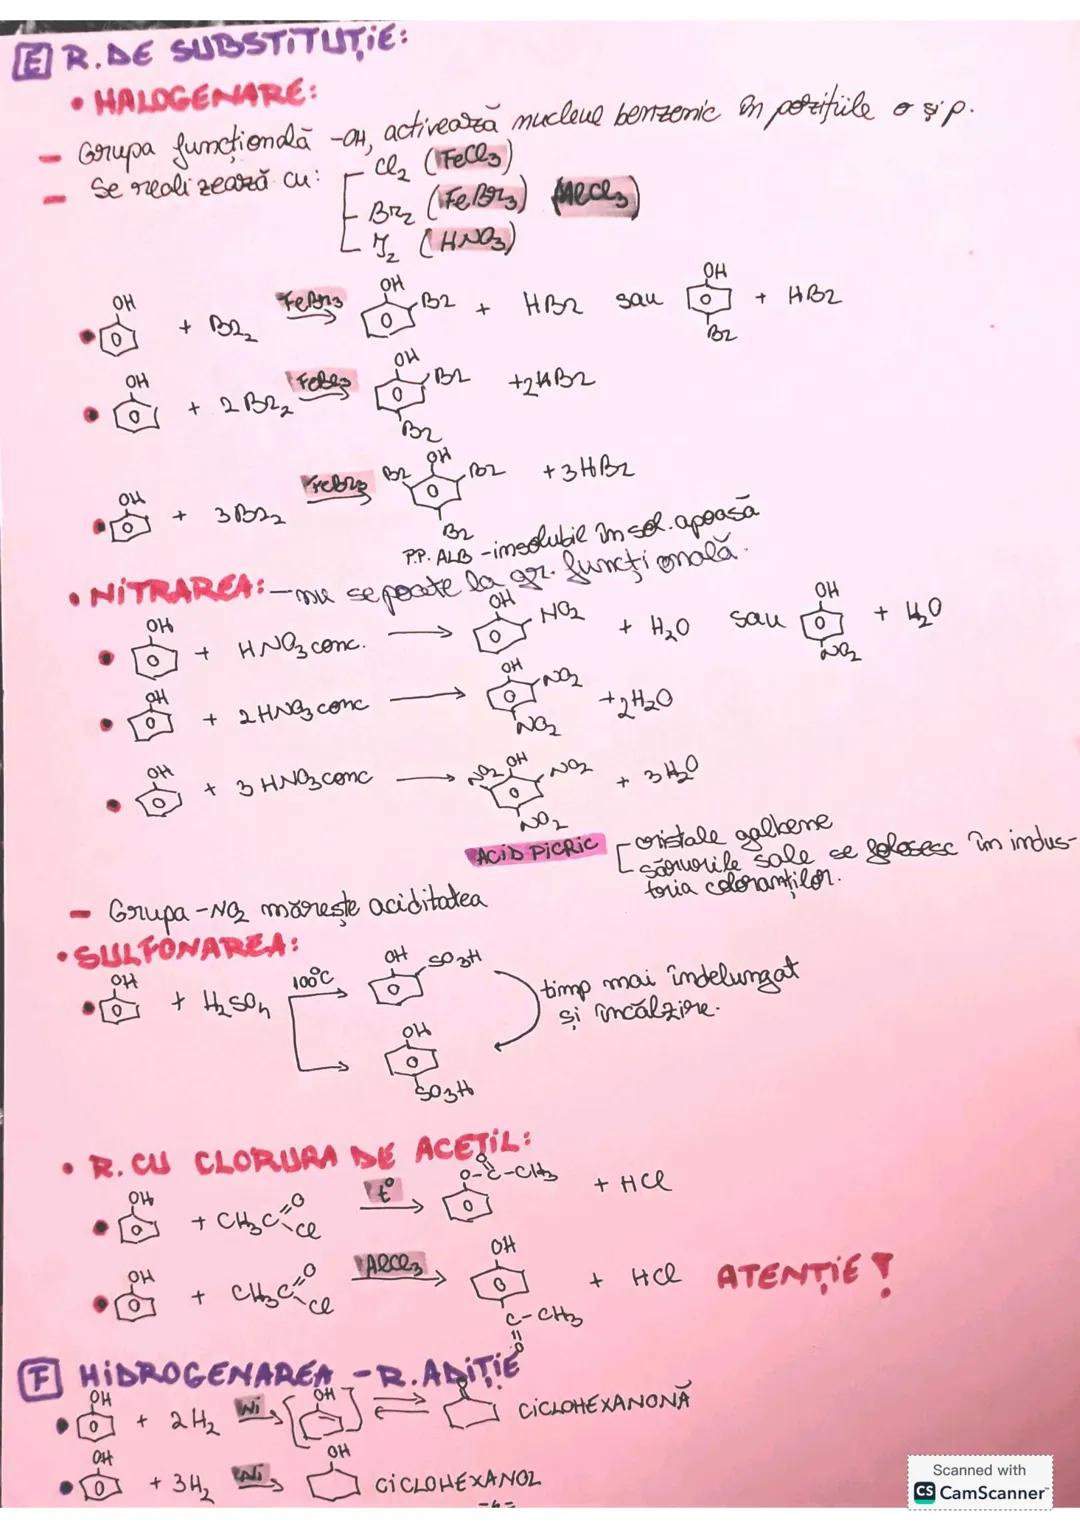 E R. DE SUBSTITUȚIE:
• HALOGENARE:
- Grupa funcțională -OH, activează nucleul benzenic în pozițiile o și p.
- Se realizează cu: Cl2 (FeCl3)
Br2 (FeBr3) AlCl3)
I2 (HNO3)
• OH + Br2 FeBr3 → OH Br + HBr sau OH Br + HBr
• OH + 2Br2 FeBr3 → OH Br Br +2HBr
• OH + 3Br2 FeBr3 → Br OH Br Br +3HBr
P.P. ALB - insolubil în sol. apoasă
• NITRAREA: - nu se poate la gr. funcțională.
• OH + HNO3 conc. → OH NO2 + H2O sau OH NO2 + H2O
• OH + 2HNO3 conc → OH NO2 NO2 +2H2O
• OH + 3HNO3 conc → NO2 OH NO2 NO2 + 3H2O
ACID PICRIC - cristale galbene
- sărurile sale se folosesc în indus-
tria coloranților.
- Grupa -NO2 mărește aciditatea
• SULFONAREA:
• OH + H2SO4 100°C → OH SO3H
timp mai îndelungat
și încălzire.
→ OH SO3H
• R. CU CLORURA DE ACETIL:
• OH + CH3C=O Cl t° → O-C-CH3 O + HCl
• OH + CH3C=O Cl AlCl3 → OH C-CH3 O + HCl ATENȚIE!
F HIDROGENAREA - R. ADIȚIE
• OH + 2H2 Ni → [OH] ⇌ O CICLOHEXANONĂ
• OH + 3H2 Ni → OH CICLOHEXANOL
Scanned with
CS CamScanner